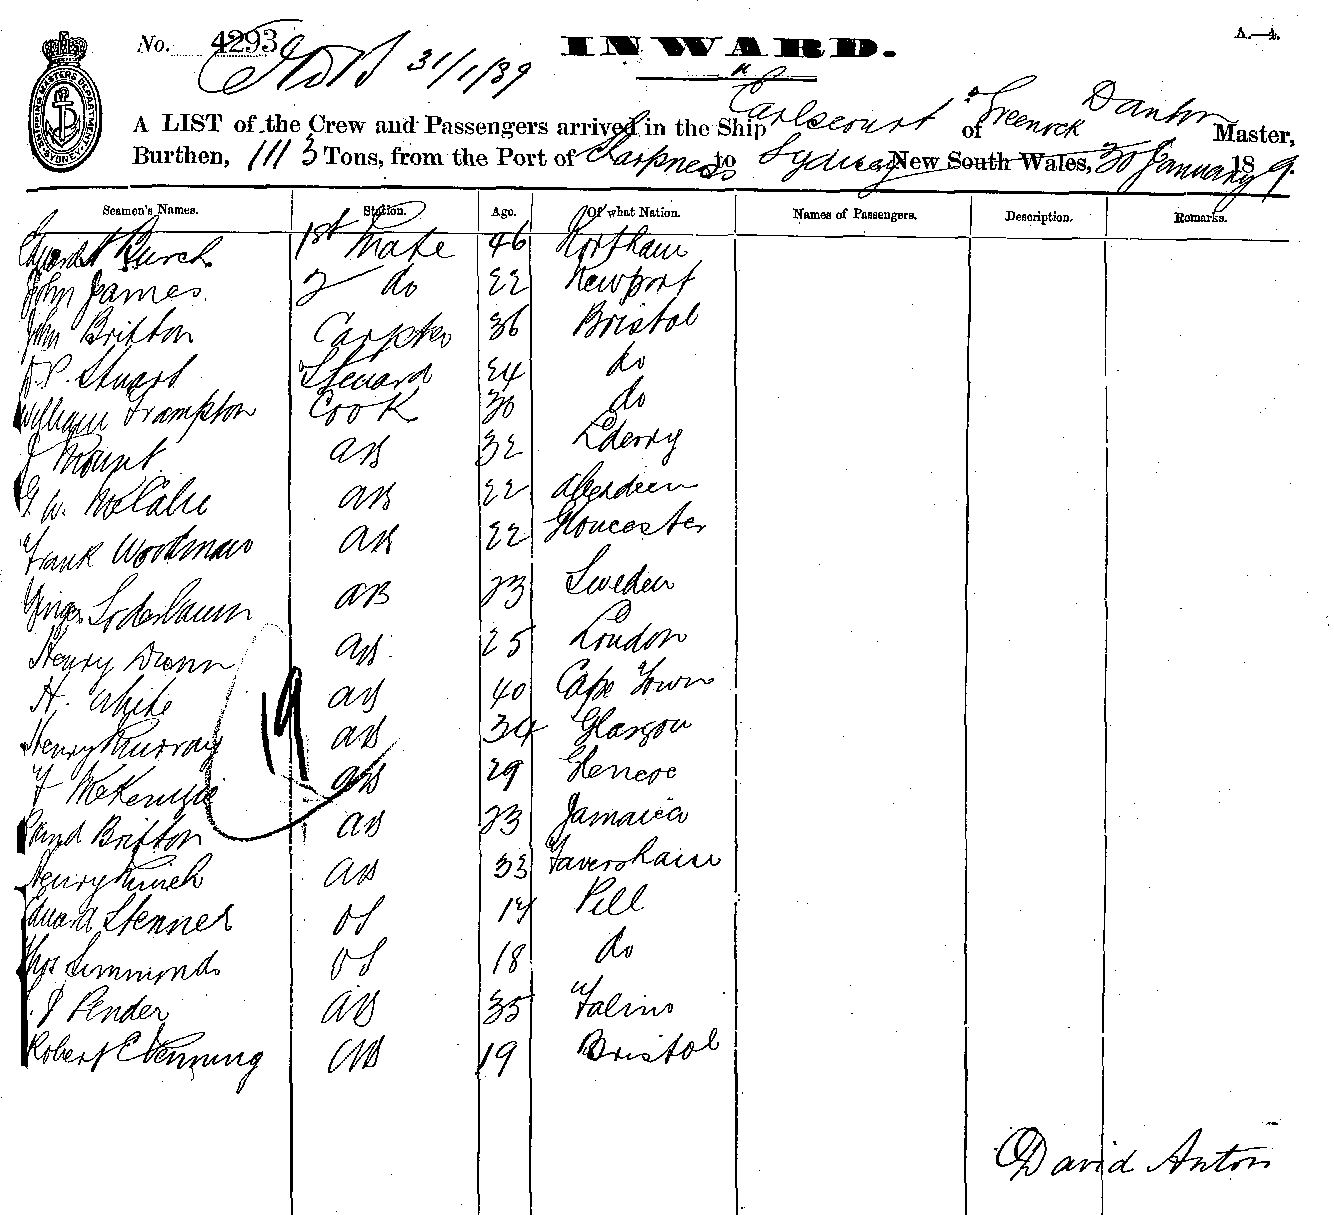 No. 4293
31/1/89
INWARD.
A.—4.
SHIPPING MASTERS DEPARTMENT SYDNEY
A LIST of the Crew and Passengers arrived in the Ship "Earlscourt" of Greenock D Anton Master,
Burthen, 1113 Tons, from the Port of Sharpness to Sydney New South Wales, 30 January 189.
Seamen's Names. Station. Age. Of what Nation. Names of Passengers. Description. Remarks.
Burch 1st Mate 46 Northam
John James 2 do 22 Newport
John Britton Carptr 36 Bristol
Stuart Steward 24 do
William Frampton Cook 30 do
J Mount AB 32 Lderry
G. W. McCabe AB 22 Aberdeen
Frank Woodman AB 22 Gloucester
Soderlaum AB 23 Sweden
Henry Dunn AB 25 London
H. White AB 40 Cape Town
Henry Murray AB 34 Glasgow
F McKenzie AB 29 Glencoe
Britton AB 23 Jamaica
Henry AB 33 Faversham
Edward Stenner OS 17 Pill
Thos Simmonds OS 18 do
J Pender AB 35
Robert C Venning AB 19 Bristol
19
David Anton